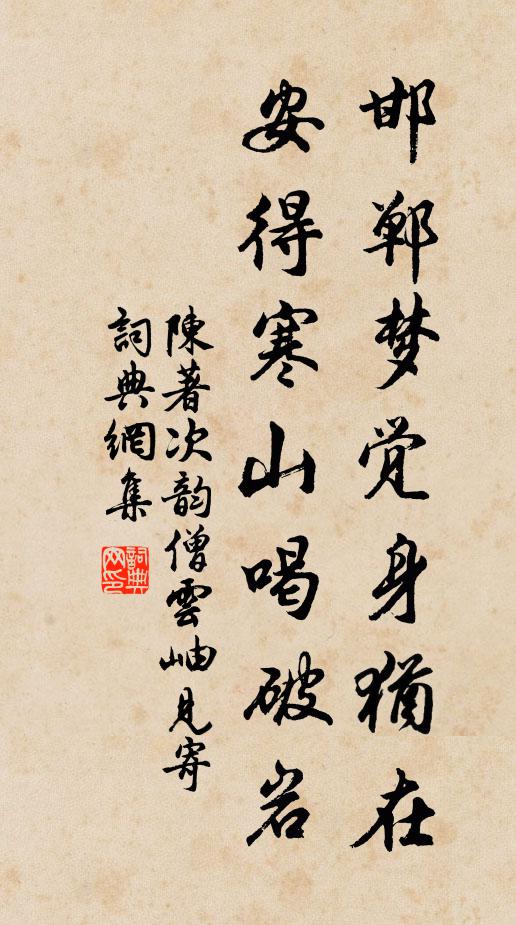 邯郸梦觉身犹在
安得寒山喝破岩
陳著次韵僧雲岫見寄
詞典網集
詞典网印